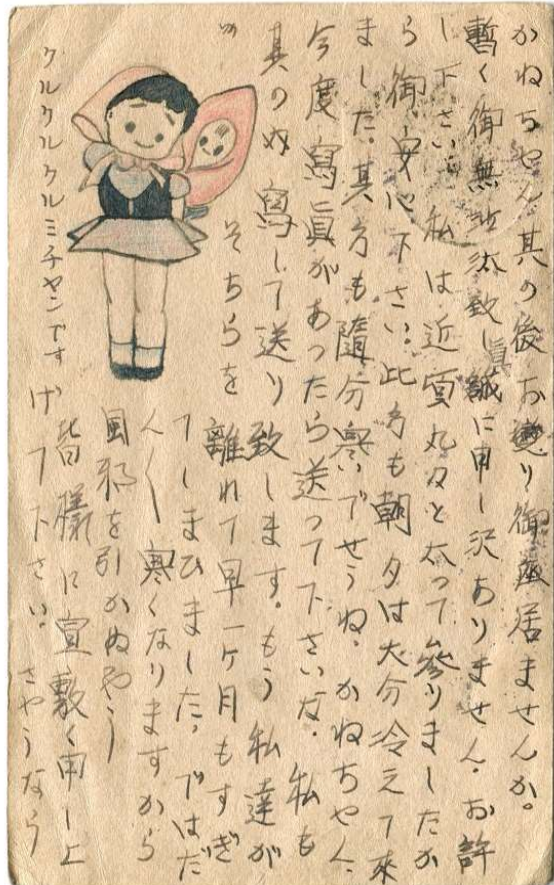 かねちやん其の後お變り御座居ませんか。
暫く御無沙汰致し誠に申し沢ありません。お許
し下さい。私は近頃丸々と太って參りましたか
ら御安心下さい。此方も朝夕は大分冷えて來
ました。其方も隨分寒いでせうね。かねちやん、
今度寫眞があったら送って下さいな。私も
其の内寫して送り致します。もう私達が
そちらを離れて早一ヶ月もすぎ
てしまひました。ではだ
ん〱寒くなりますから
風邪を引かぬやう
皆様に宜敷く申し上
げて下さい。さやうなら
クルクルクルミチヤンです